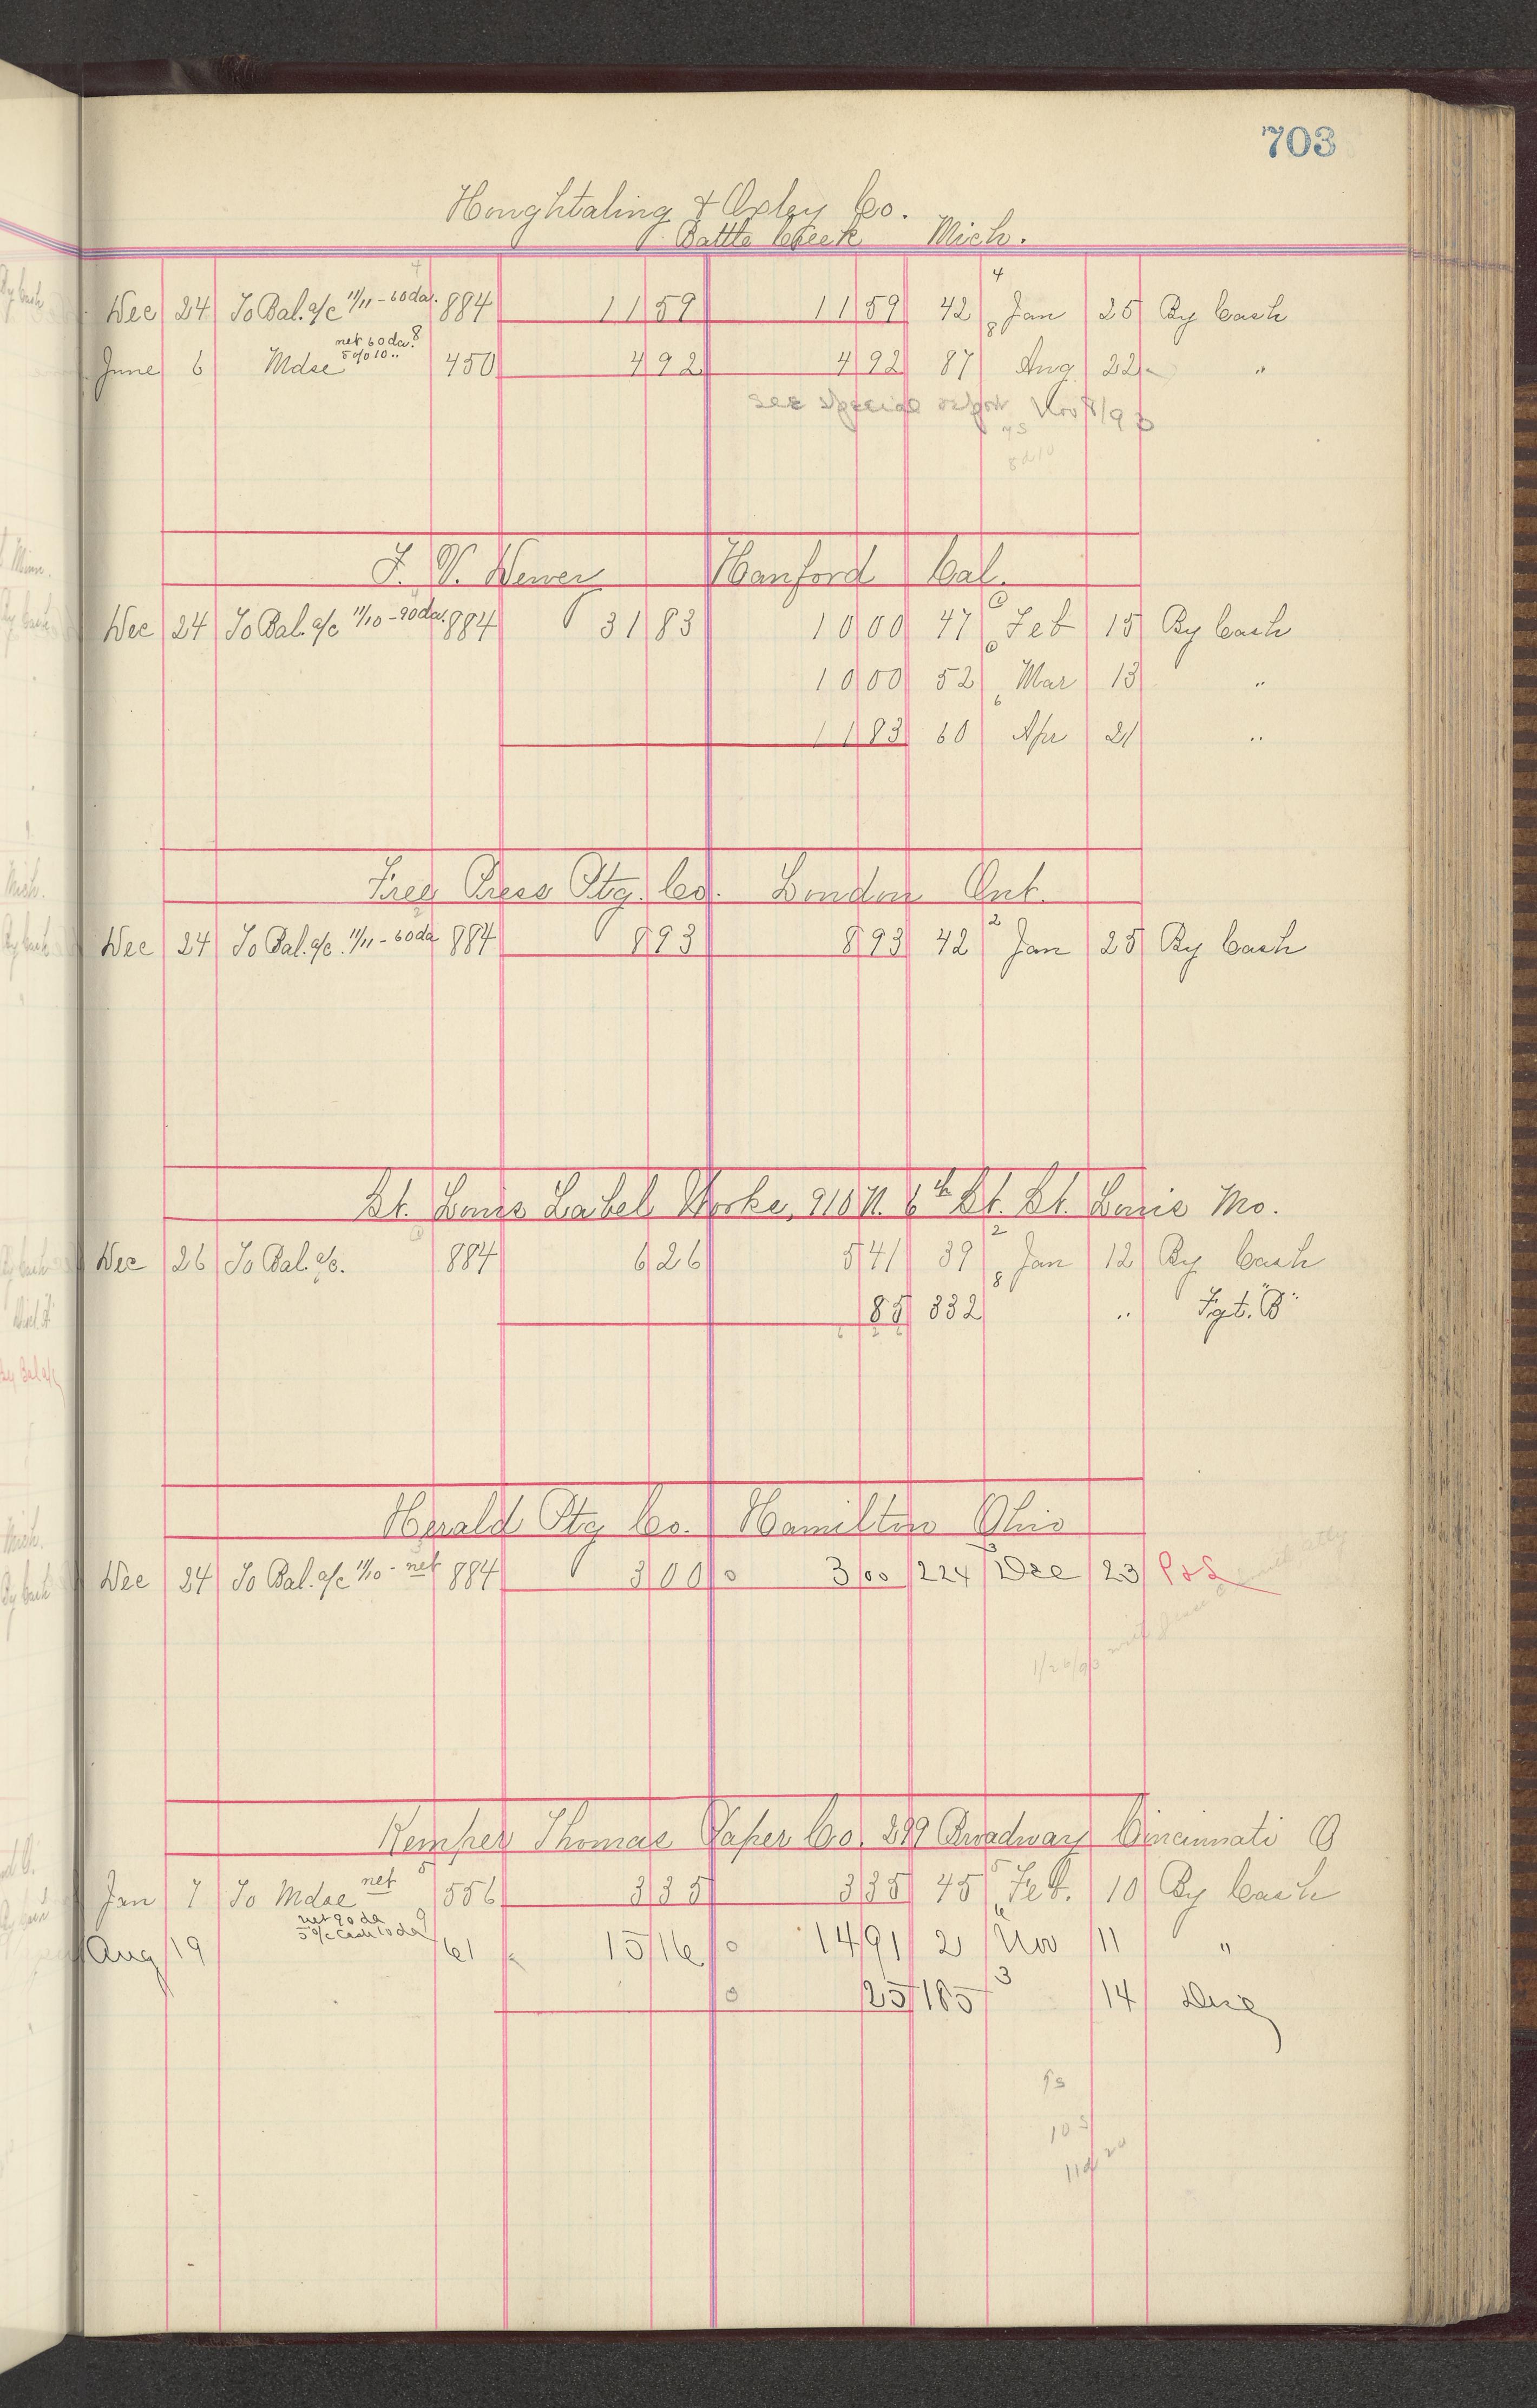 703
Houghtaling & Oxley Co.
Battle Creek Mich.
Dec 24 To Bal. a/c 11/11 - 60 da. 884 11 59 11 59 42 Jan 25 By Cash
net 60 da. 8
5 % 10 ..
June 6 Mdse 450 4 92 4 92 87 Aug 22 "
see special report Nov 8/93
J. V. Dewer Hanford Cal.
Dec 24 To Bal. a/c 11/10 - 90 da. 884 31 83 10 00 47 Feb 15 By Cash
10 00 52 Mar 13 "
11 83 60 Apr 21 "
Free Press Ptg. Co. London Ont.
Dec 24 To Bal. a/c. 11/11 - 60 da 884 8 93 8 93 42 Jan 25 By Cash
St. Louis Label Works, 210 N. 6th St. St. Louis Mo.
Dec 26 To Bal. a/c. 884 6 26 5 41 39 Jan 12 By Cash
85 332 " Fgt. "B"
Herald Ptg Co. Hamilton Ohio
Dec 24 To Bal. a/c 11/10 - net 884 3 00 3 00 224 Dec 23 P&L
1/26/93 with
Kemper Thomas Paper Co. 239 Broadway Cincinnati O
Jan 7 To Mdse net 5 556 3 35 3 35 45 Feb. 10 By Cash
net 90 da 9
5 % Cash 10 da
Aug 19 61 15 16 14 91 2 Nov 11 "
25 185 3 14 Disc